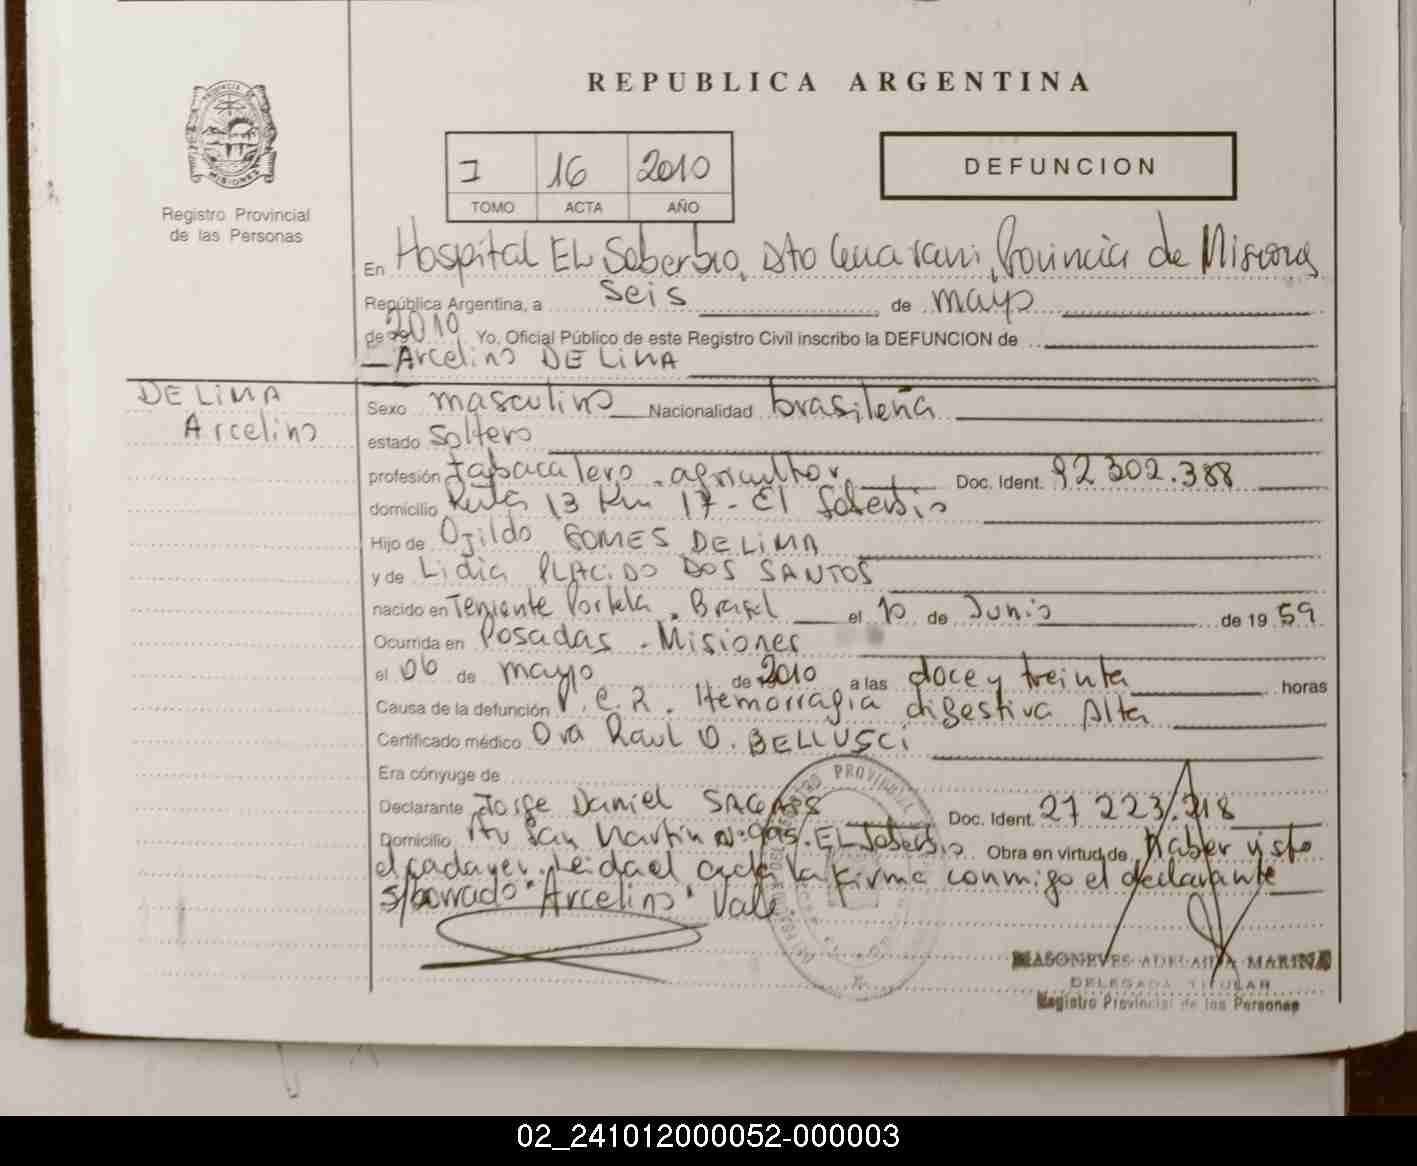 REPUBLICA ARGENTINA
I 16 2010
TOMO ACTA AÑO
DEFUNCION
Registro Provincial
de las Personas
En Hospital EL Soberbio, Dto Guarani, Provincia de Misiones
República Argentina, a seis de mayo
de 2010 Yo, Oficial Público de este Registro Civil inscribo la DEFUNCION de
Arcelino DE LIMA
DE LIMA
Arcelino
Sexo masculino Nacionalidad brasileña
estado Soltero
profesión tabacalero - agricultor Doc. Ident. 92 302.388
domicilio Ruta 13 Km 17 - El Soberbio
Hijo de Ogildo GOMES DE LIMA
y de Lidia PLACIDO DOS SANTOS
nacido en Teniente Portela. Brasil el 10 de Junio de 19 59
Ocurrida en Posadas - Misiones
el 06 de mayo de 2010 a las doce y treinta horas
Causa de la defunción P.C.R. Hemorragia digestiva Alta
Certificado médico Raul O. BELLUSCI
Era cónyuge de
Declarante Jorge Daniel Doc. Ident. 27 223.218
Domicilio San Martin EL Soberbio Obra en virtud de Haber visto
el cadaver. Leida el acta la firma conmigo el declarante
s/borrado "Arcelino" Vale.
MASONEVES ADELAIDA MARINA
DELEGADA TITULAR
Registro Provincial de las Personas
02_241012000052-000003